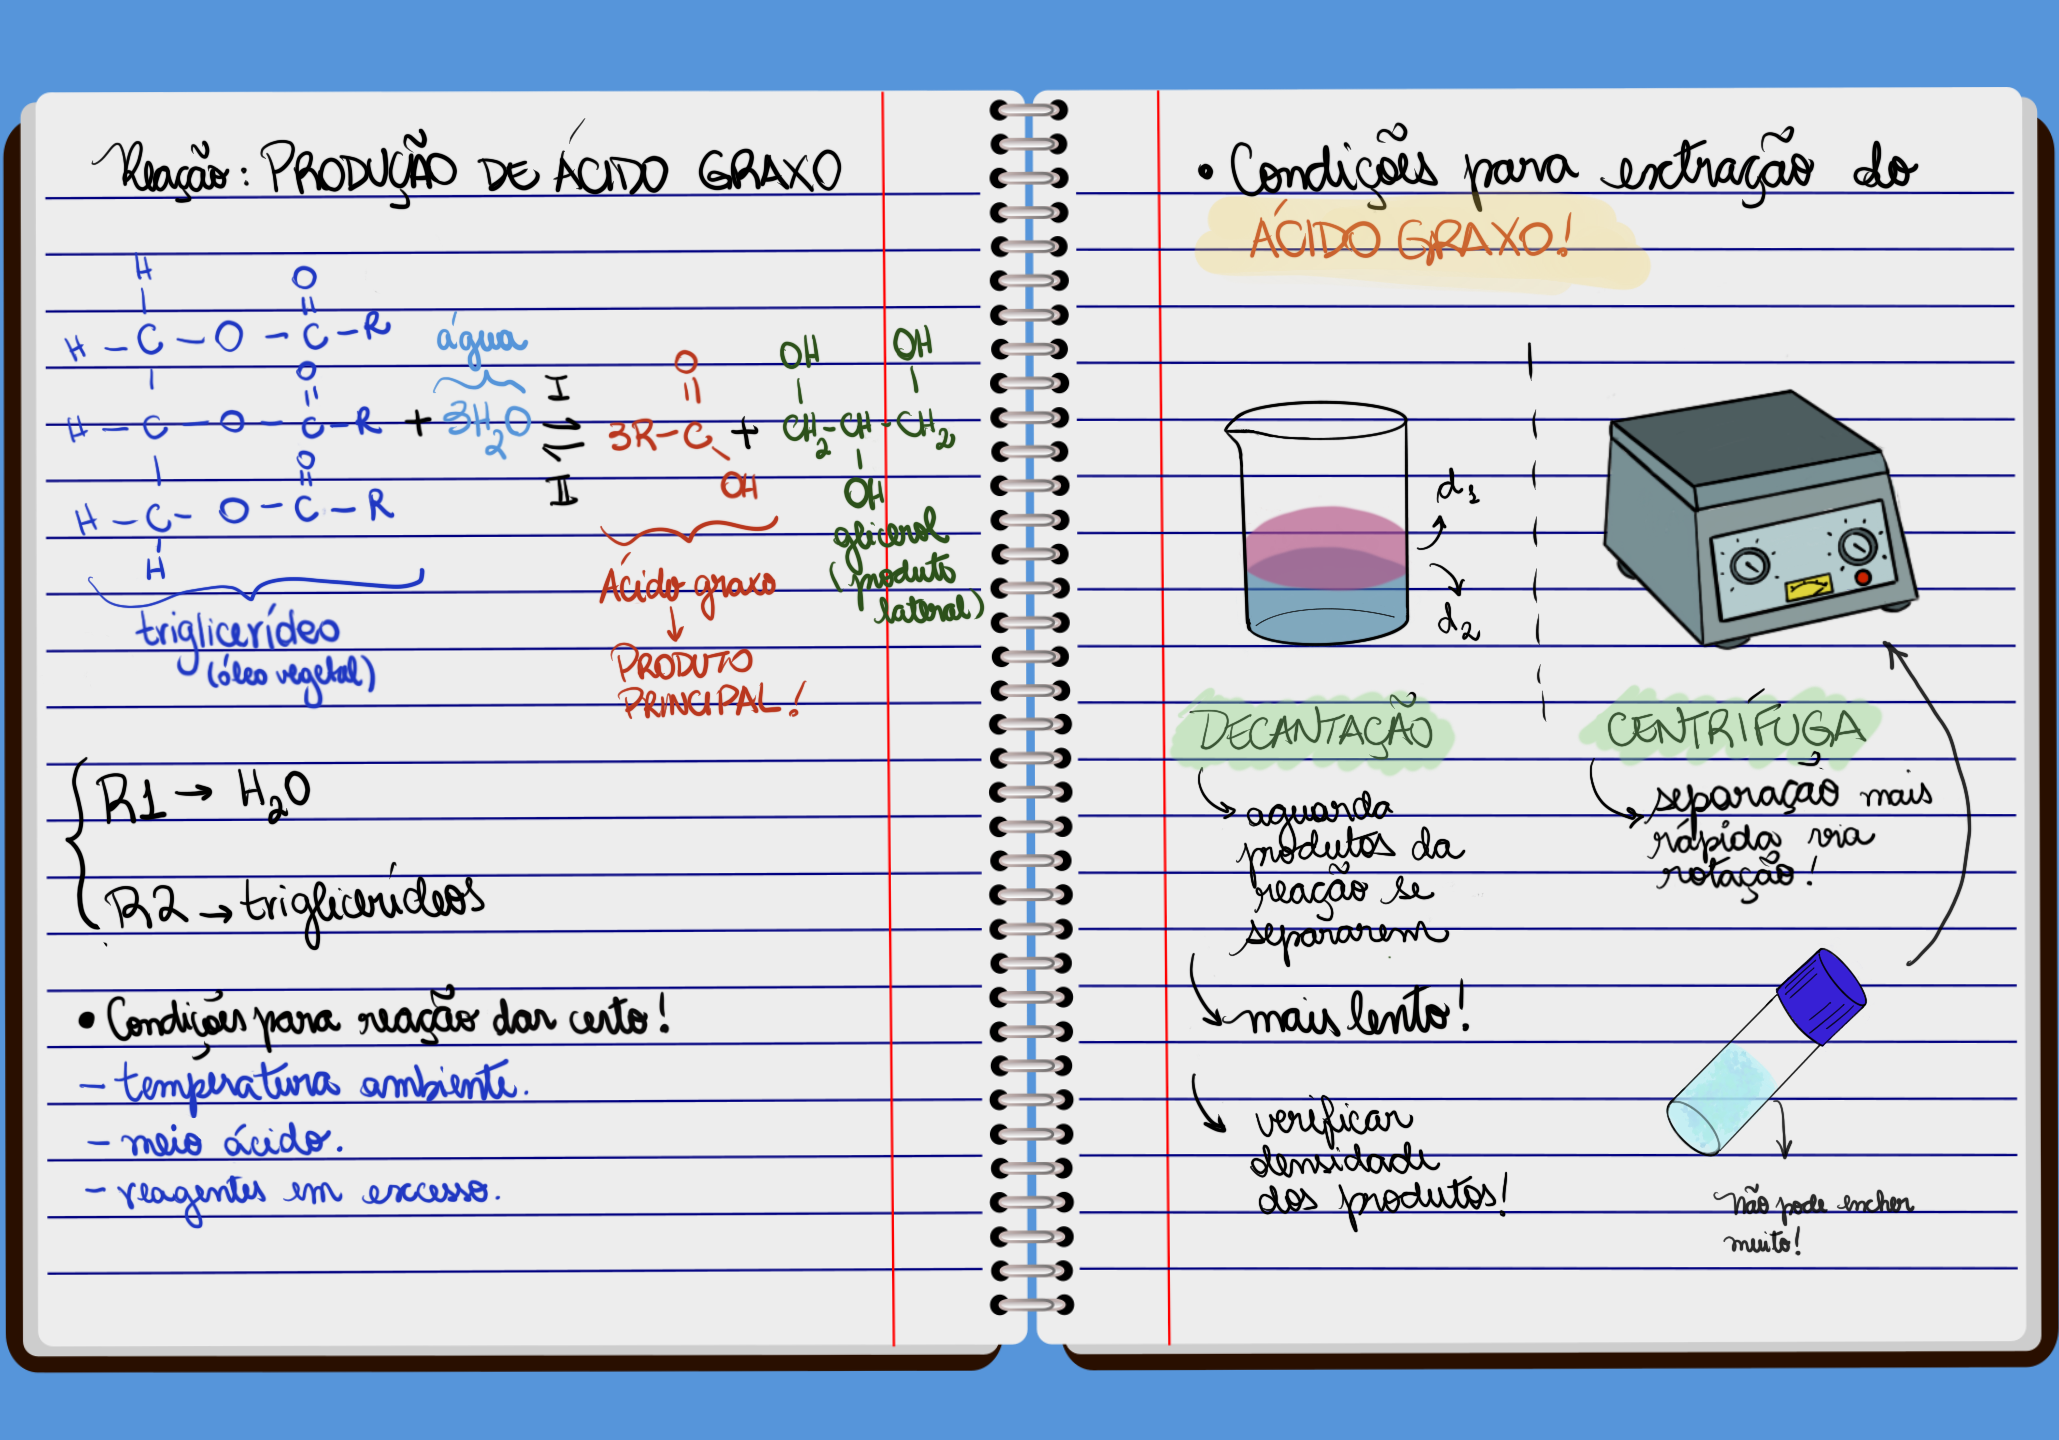 Reação: PRODUÇÃO DE ÁCIDO GRAXO
H
O
H – C – O – C – R
água
O
I
O
OH
OH
H – C – O – C – R + 3H2O ⇌ 3R – C + CH2 – CH – CH2
O
II
OH
OH
H – C – O – C – R
H
glicerol
(produto
lateral)
Ácido graxo
triglicerídeo
(óleo vegetal)
PRODUTO
PRINCIPAL!
R1 → H2O
R2 → triglicerídeos
• Condições para reação dar certo!
– temperatura ambiente.
– meio ácido.
– reagentes em excesso.
• Condições para extração do
ÁCIDO GRAXO!
d1
d2
DECANTAÇÃO
aguarda
produtos da
reação se
separarem
mais lento!
verificar
densidade
dos produtos!
CENTRÍFUGA
separação mais
rápida via
rotação!
Não pode encher
muito!